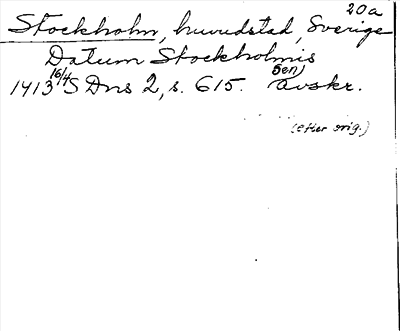 20a
Stockholm, huvudstad, Sverige
Datum Stockholmis
1413 16/4 S Dns 2, s. 615. (sen) avskr.
(efter orig.)